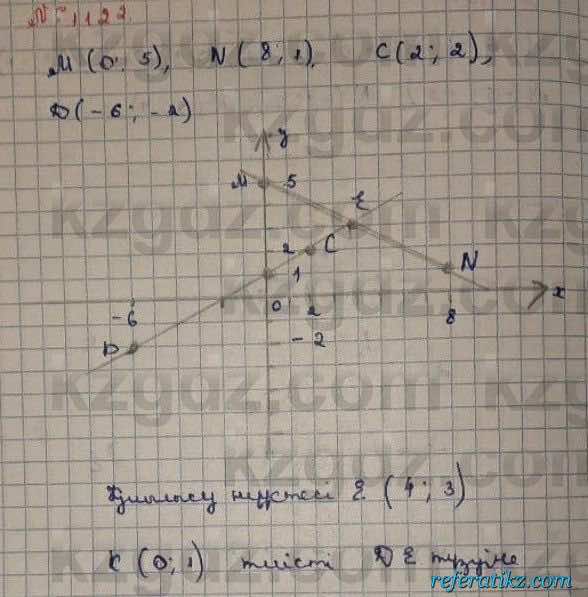 № 1122
M (0; 5), N (8; 1) C (2; 2),
D (-6; -2)
y
M 5
E
2 C
1 N
x
-6 0 2 8
D -2
Қиылысу нүктесі E (4; 3)
K (0; 1) тиісті DE түзуіне
kzgdz.com kzgdz.com
referatikz.com